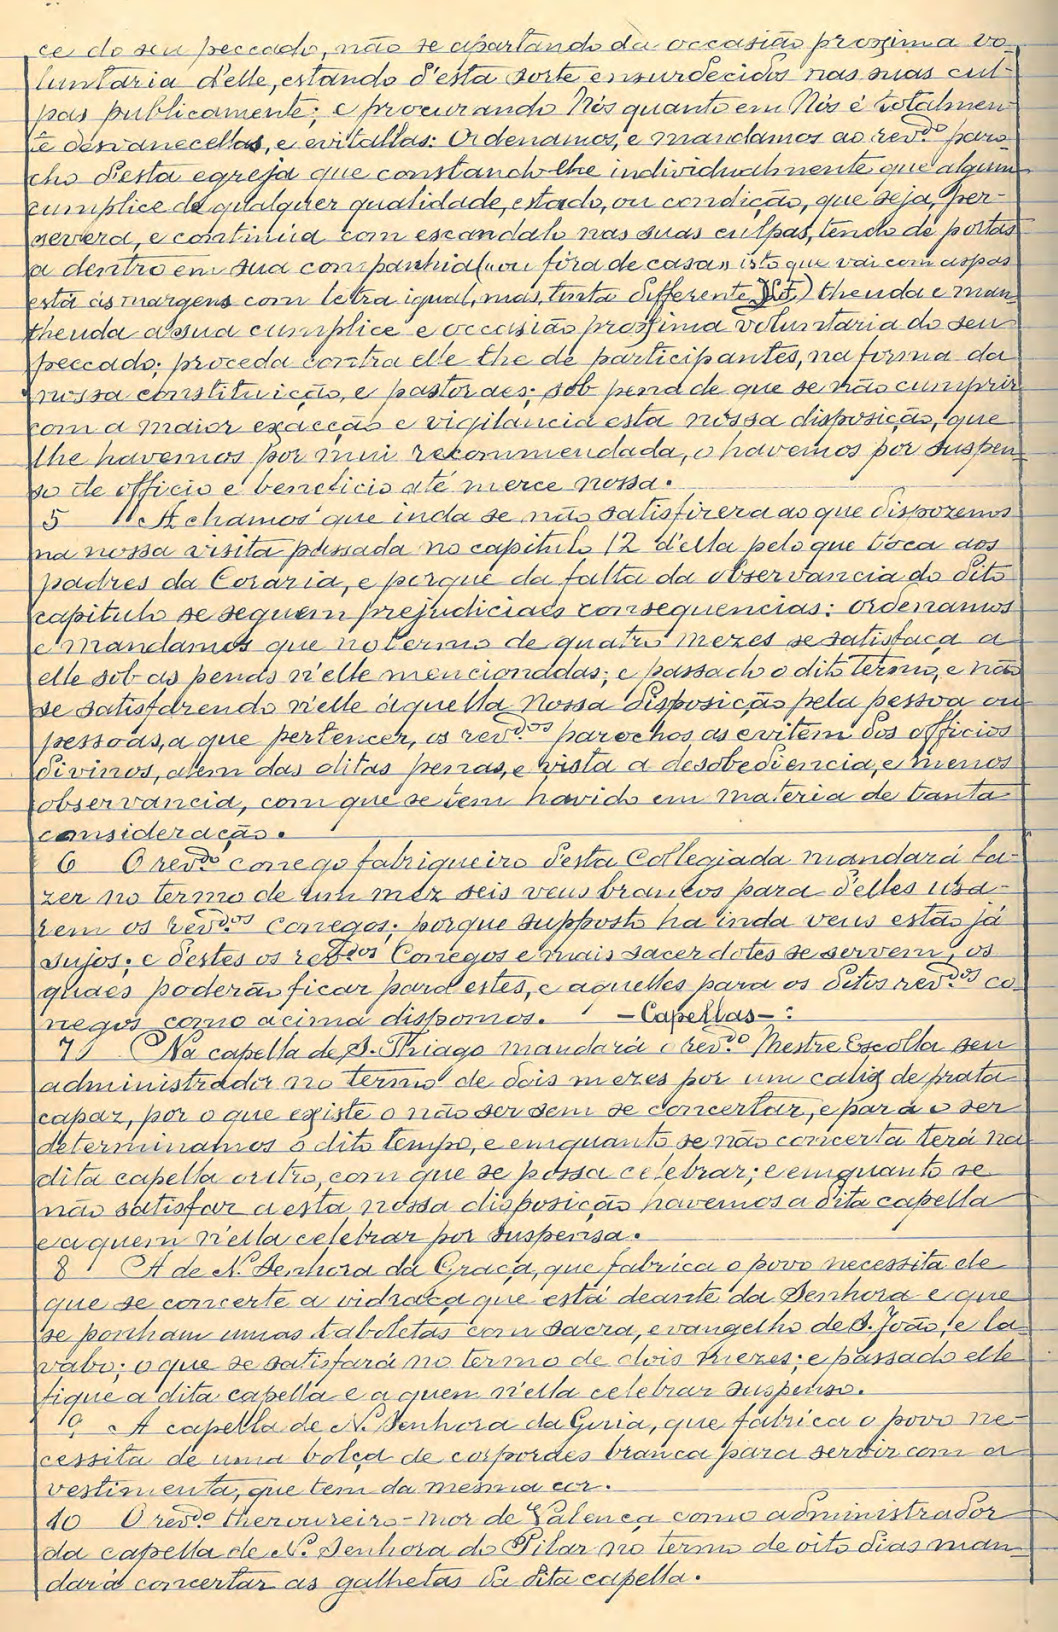 ce do seu peccado, não se apartando da occasião proxima vo-
luntaria d'elle, estando d'esta sorte ensurdecidos nas suas cul-
pas publicamente; e procurando Nós quanto em Nós é totalmen-
te desvanecellas, e evitallas: Ordenamos, e mandamos ao rev.do paro-
cho d'esta egreja que constando-lhe individualmente que algum
cumplice de qualquer qualidade, estado, ou condição, que seja, per-
severa, e continúa com escandalo nas suas culpas, tendo de portas
a dentro em sua companhia («ou fóra de casa» isto que vai com aspas
está ás margens com letra igual, mas, tinta differente) theuda e man-
theuda a sua cumplice e occasião proxima voluntaria do seu
peccado; proceda contra elle the de participantes, na forma da
nossa constituição, e pastoraes; sob pena de que se não cumprir
com a maior exacção e vigilancia esta nossa disposição, que
lhe havemos por mui recommendada, o havemos por suspen-
so de officio e beneficio até merce nossa.
5 Achamos que inda se não satisfizera ao que dispozemos
na nossa visita passada no capitulo 12 d'ella pelo que tóca aos
padres da Coraria, e porque da falta da observancia do dito
capitulo se seguem prejudiciaes consequencias: ordenamos
e mandamos que no termo de quatro mezes se satisfaça a
elle sob as penas n'elle mencionadas; e passado o dito termo, e não
se satisfazendo n'elle áquella nossa disposição pela pessoa ou
pessoas, a que pertencer, os rev.dos parochos as evitem dos officios
divinos, alem das ditas penas, e vista a desobediencia, e menos
observancia, com que se tem havido em materia de tanta
consideração.
6 O rev.do conego fabriqueiro d'esta Collegiada mandará fa-
zer no termo de um mez seis veus brancos para d'elles usa-
rem os rev.dos conegos; porque supposto ha inda veus estão já
sujos; e d'estes os rev.dos Conegos e mais sacerdotes se servem, os
quaes poderão ficar para estes, e aquelles para os ditos rev.dos co-
negos como ácima dispomos. - Capellas - :
7 Na capella de S. Thiago mandará o rev.do Mestre Escolla seu
administrador no termo de dois mezes por um calix de prata
capaz, por o que existe o não ser sem se concertar, e para o ser
determinamos o dito tempo, e emquanto se não concerta terá na
dita capella outro, com que se possa celebrar; e emquanto se
não satisfaz a esta nossa disposição havemos a dita capella
e a quem n'ella celebrar por suspensa.
8 A de N. Senhora da Graça, que fabrica o povo necessita de
que se concerte a vidraça que está deante da Senhora e que
se ponham umas taboletas com sacra, evangelho de S. João, e la-
vabo; o que se satisfará no termo de dois mezes; e passado elle
fique a dita capella e a quem n'ella celebrar suspenso.
9 A capella de N. Senhora da Guia, que fabrica o povo ne-
cessita de uma bolça de corporaes branca para servir com a
vestimenta, que tem da mesma cor.
10 O rev.do thezoureiro-mor de Valença como administrador
da capella de N. Senhora do Pilar no termo de oito dias man-
dará concertar as galhetas da dita capella.